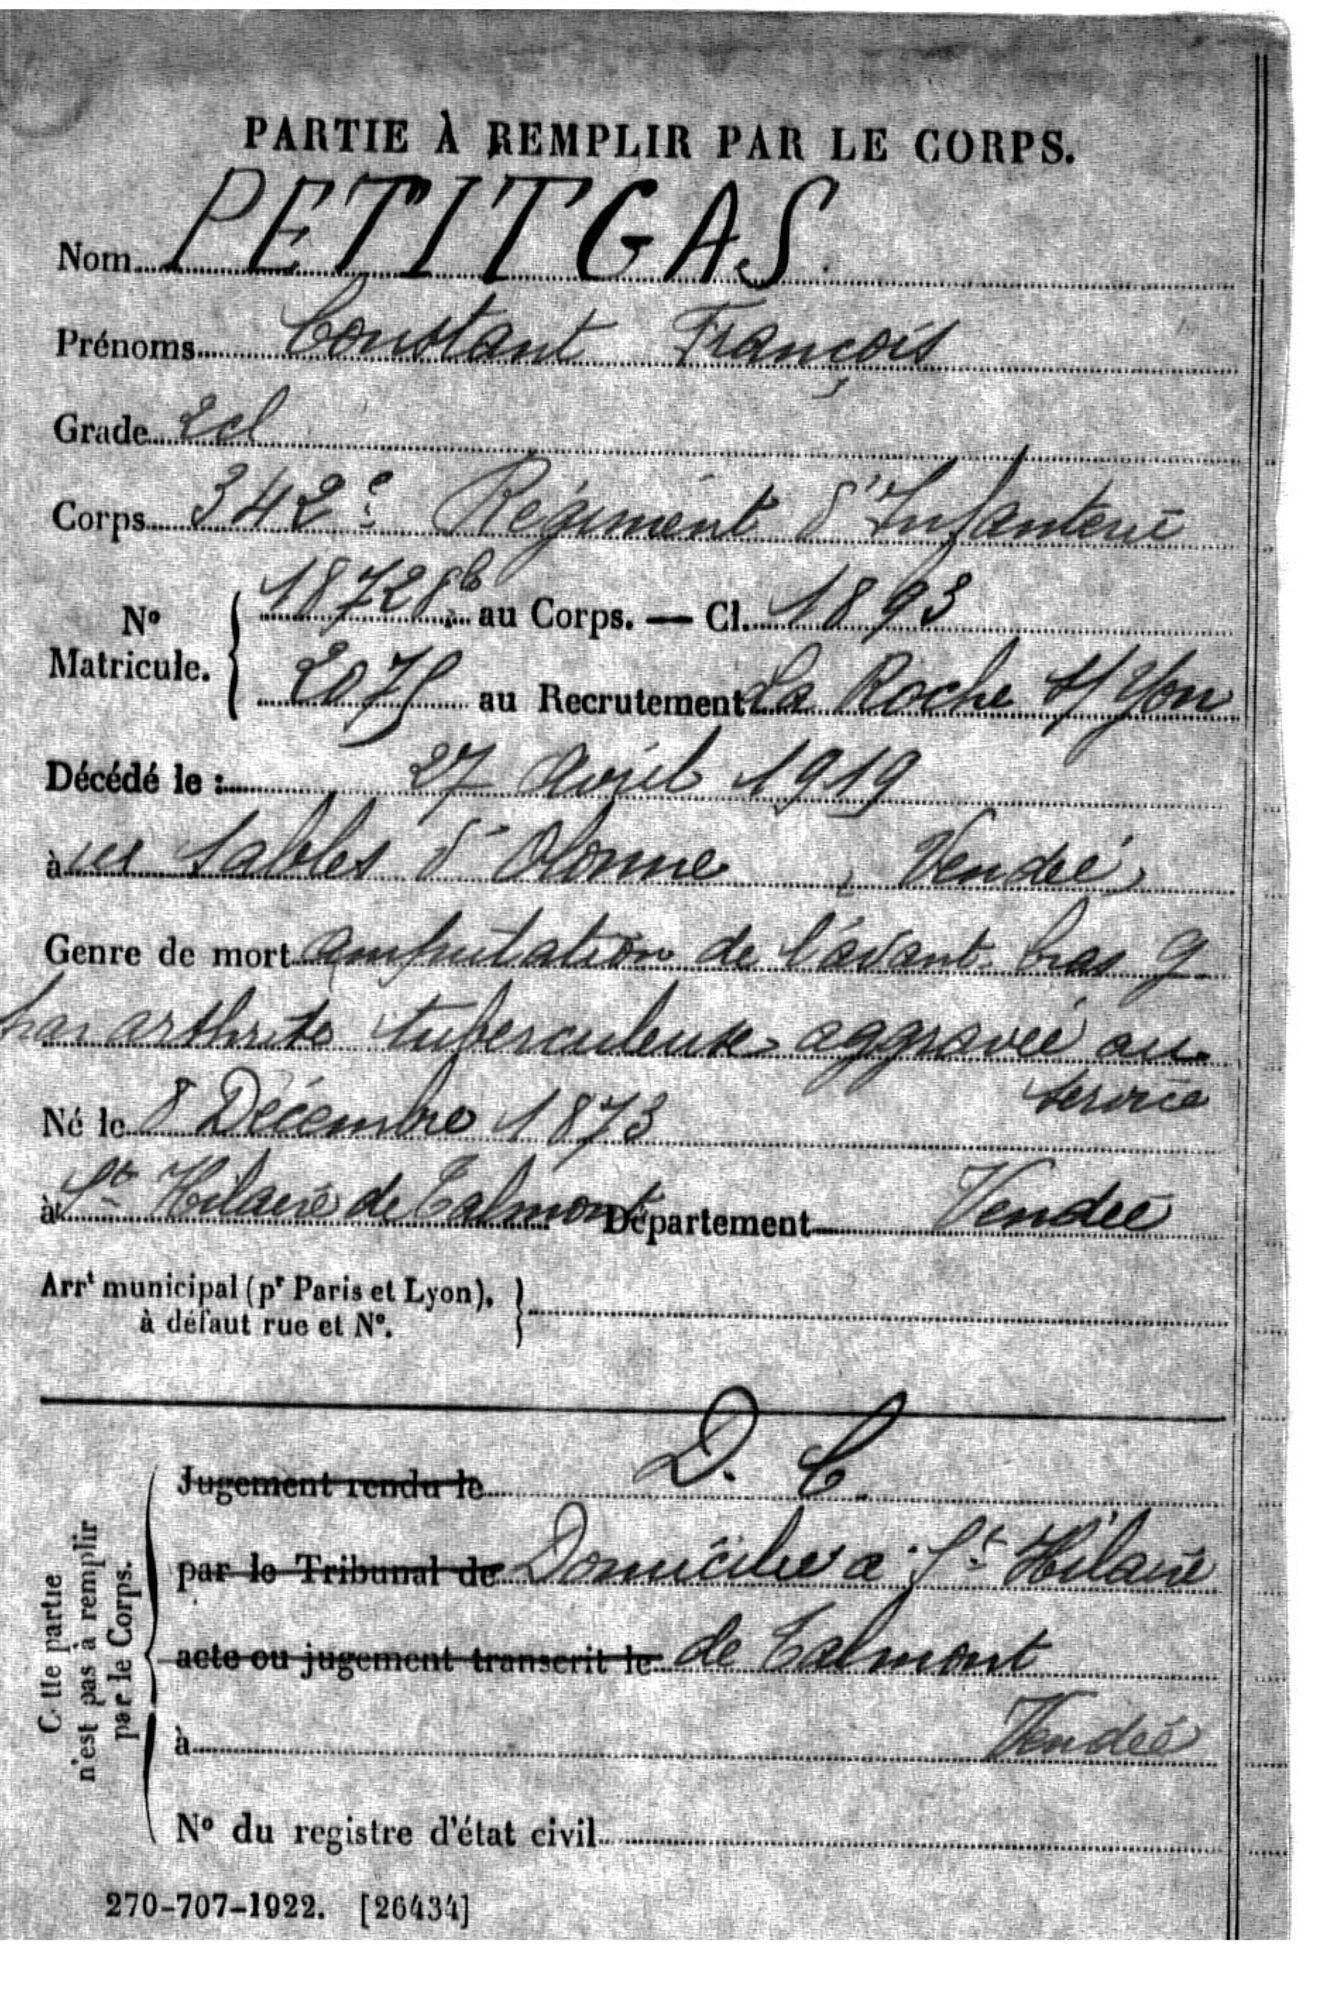 PARTIE À REMPLIR PAR LE CORPS.
Nom PETITGAS
Prénoms Constant François
Grade 2cl
Corps 342e Régiment d'Infanterie
No Matricule. 18728b au Corps. — Cl. 1893
2075 au Recrutement La Roche s/Yon
Décédé le : 27 Avril 1919
à Sables d'Olonne, Vendée,
Genre de mort amputation de l'avant-bras g
par arthrite tuberculeuse aggravée au
service
Né le 8 Décembre 1873
à St Hilaire de Talmont Département Vendée
Arrt municipal (pr Paris et Lyon),
à défaut rue et No.
D. C.
Jugement rendu le
par le Tribunal de Domicilié à St Hilaire
acte ou jugement transcrit le de Talmont
à Vendée
No du registre d'état civil
C tte partie
n'est pas à remplir
par le Corps.
270-707-1922. [26434]